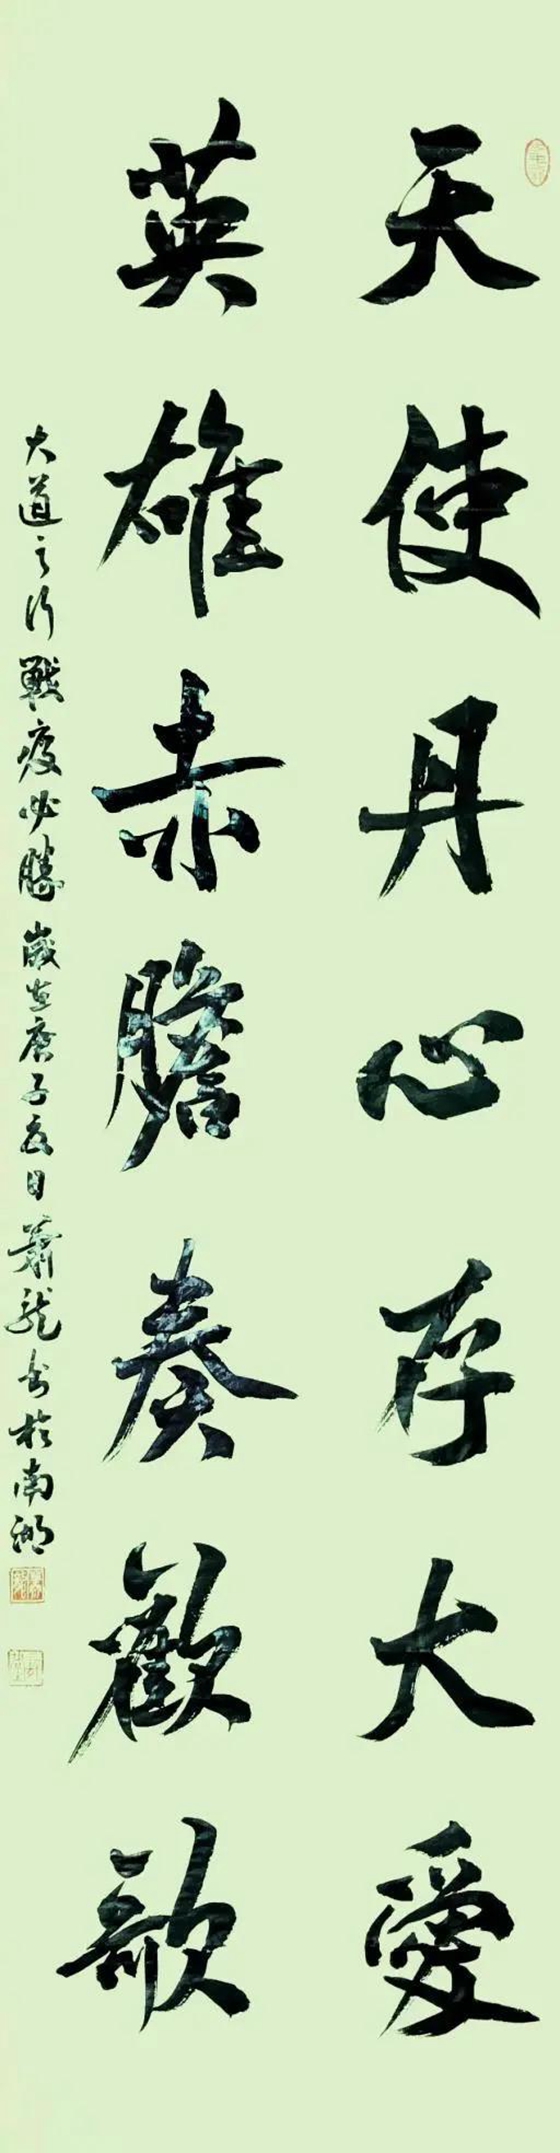 天使丹心存大愛
英雄赤膽奏歡歌
大道之行戰疫必勝歲在庚子夏日蕭龍書於南湖